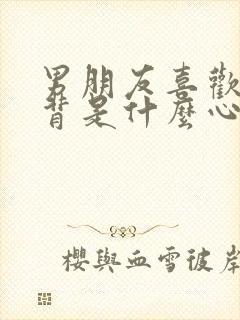 男朋友喜歡
背是什麼心
櫻與血雪彼岸